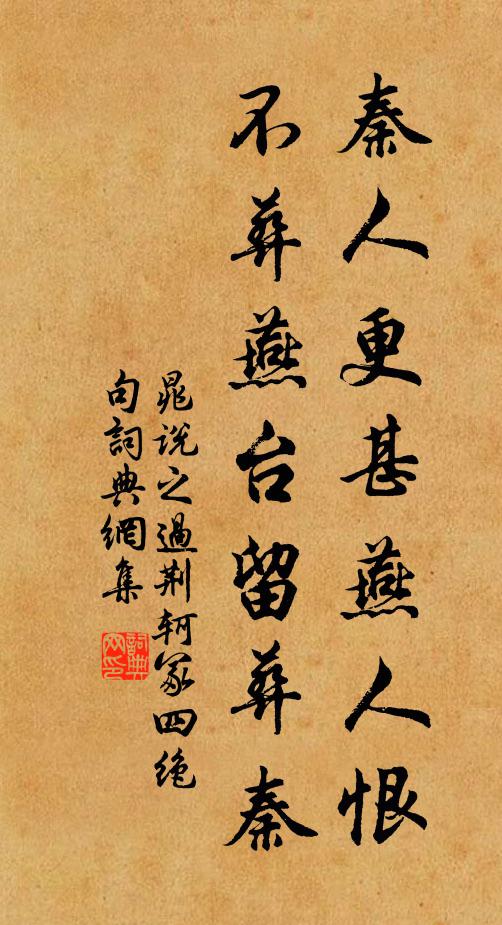 秦人更甚燕人恨
不葬燕台留葬秦
晁说之過荆軻冢四绝
句詞典網集
詞典网印